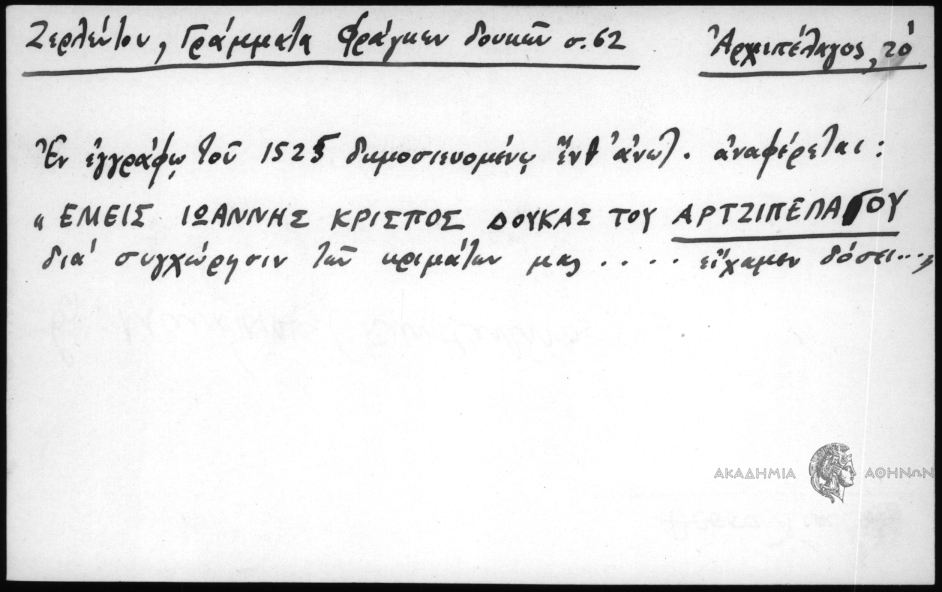 Ζερλέντου, Γράμματα Φράγκων δουκῶν σ. 62
Ἀρχιπέλαγος, τό
Ἐν ἐγγράφῳ τοῦ 1525 δημοσιευομένῳ ἔνθ' ἀνωτ. ἀναφέρεται:
«ΕΜΕΙΣ ΙΩΑΝΝΗΣ ΚΡΙΣΠΟΣ ΔΟΥΚΑΣ ΤΟΥ ΑΡΤΖΙΠΕΛΑΓΟΥ
διά συγχώρησιν τῶν κριμάτων μας .... εἴχαμεν δόσει...»
ΑΚΑΔΗΜΙΑ ΑΘΗΝΩΝ